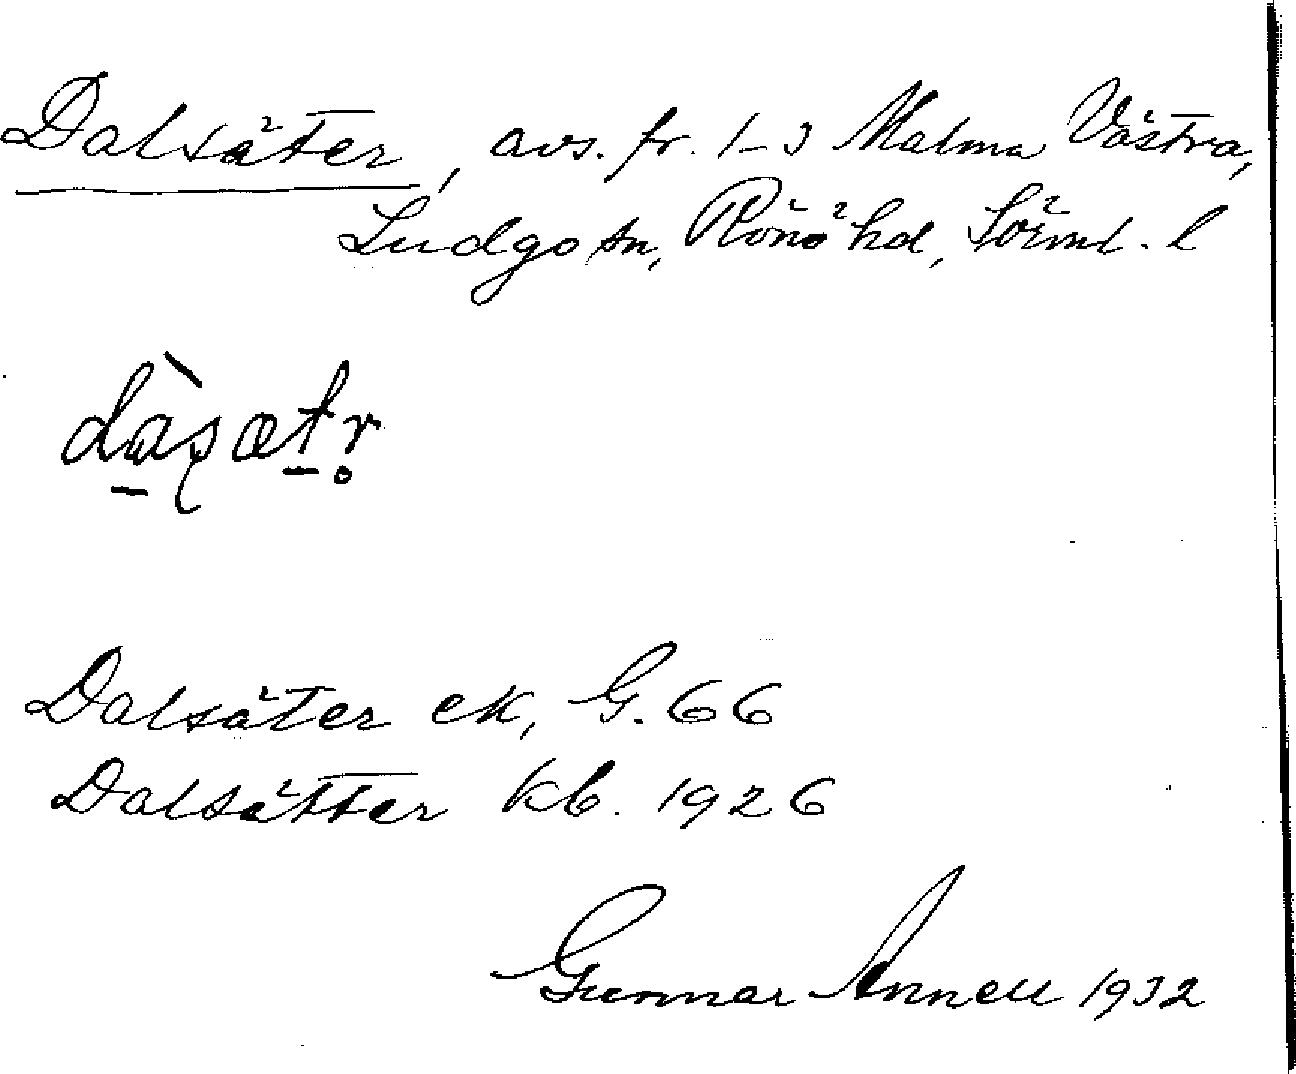 Dalsäter, avs. fr. 1-3 Malma Västra,
Ludgo sn, Rönö hd, Sörml. l
dàsætr̥
Dalsäter ek, G. 66
Dalsätter kb. 1926
Gunnar Annell 1932